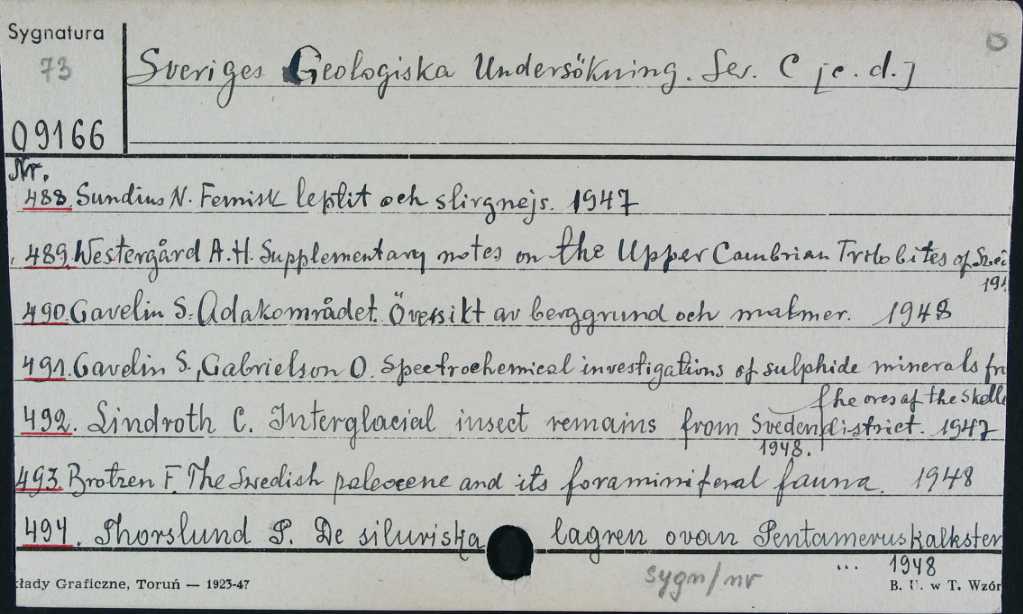 Sygnatura
73
09166
Sveriges Geologiska Undersökning. Ser. C [c. d.]
Nr.
488. Sundius N. Femisk leptit och slirgnejs. 1947
489. Westergård A.H. Supplementary notes on the Upper Cambrian Trilobites of Swe
194
490. Gavelin S. Adakområdet. Översikt av berggrund och malmer. 1948
491. Gavelin S., Gabrielson O. Spectrochemical investigations of sulphide minerals fr
the ores of the Skelle
district. 1947
492. Lindroth C. Interglacial insect remains from Sveden
1948.
493. Brotzen F. The Swedish paleocene and its foraminiferal fauna. 1948
494. Thorslund P. De siluriska lagren ovan Pentameruskalksten
... 1948
sygn/nr
kłady Graficzne, Toruń — 1923-47
B. U. w T. Wzór